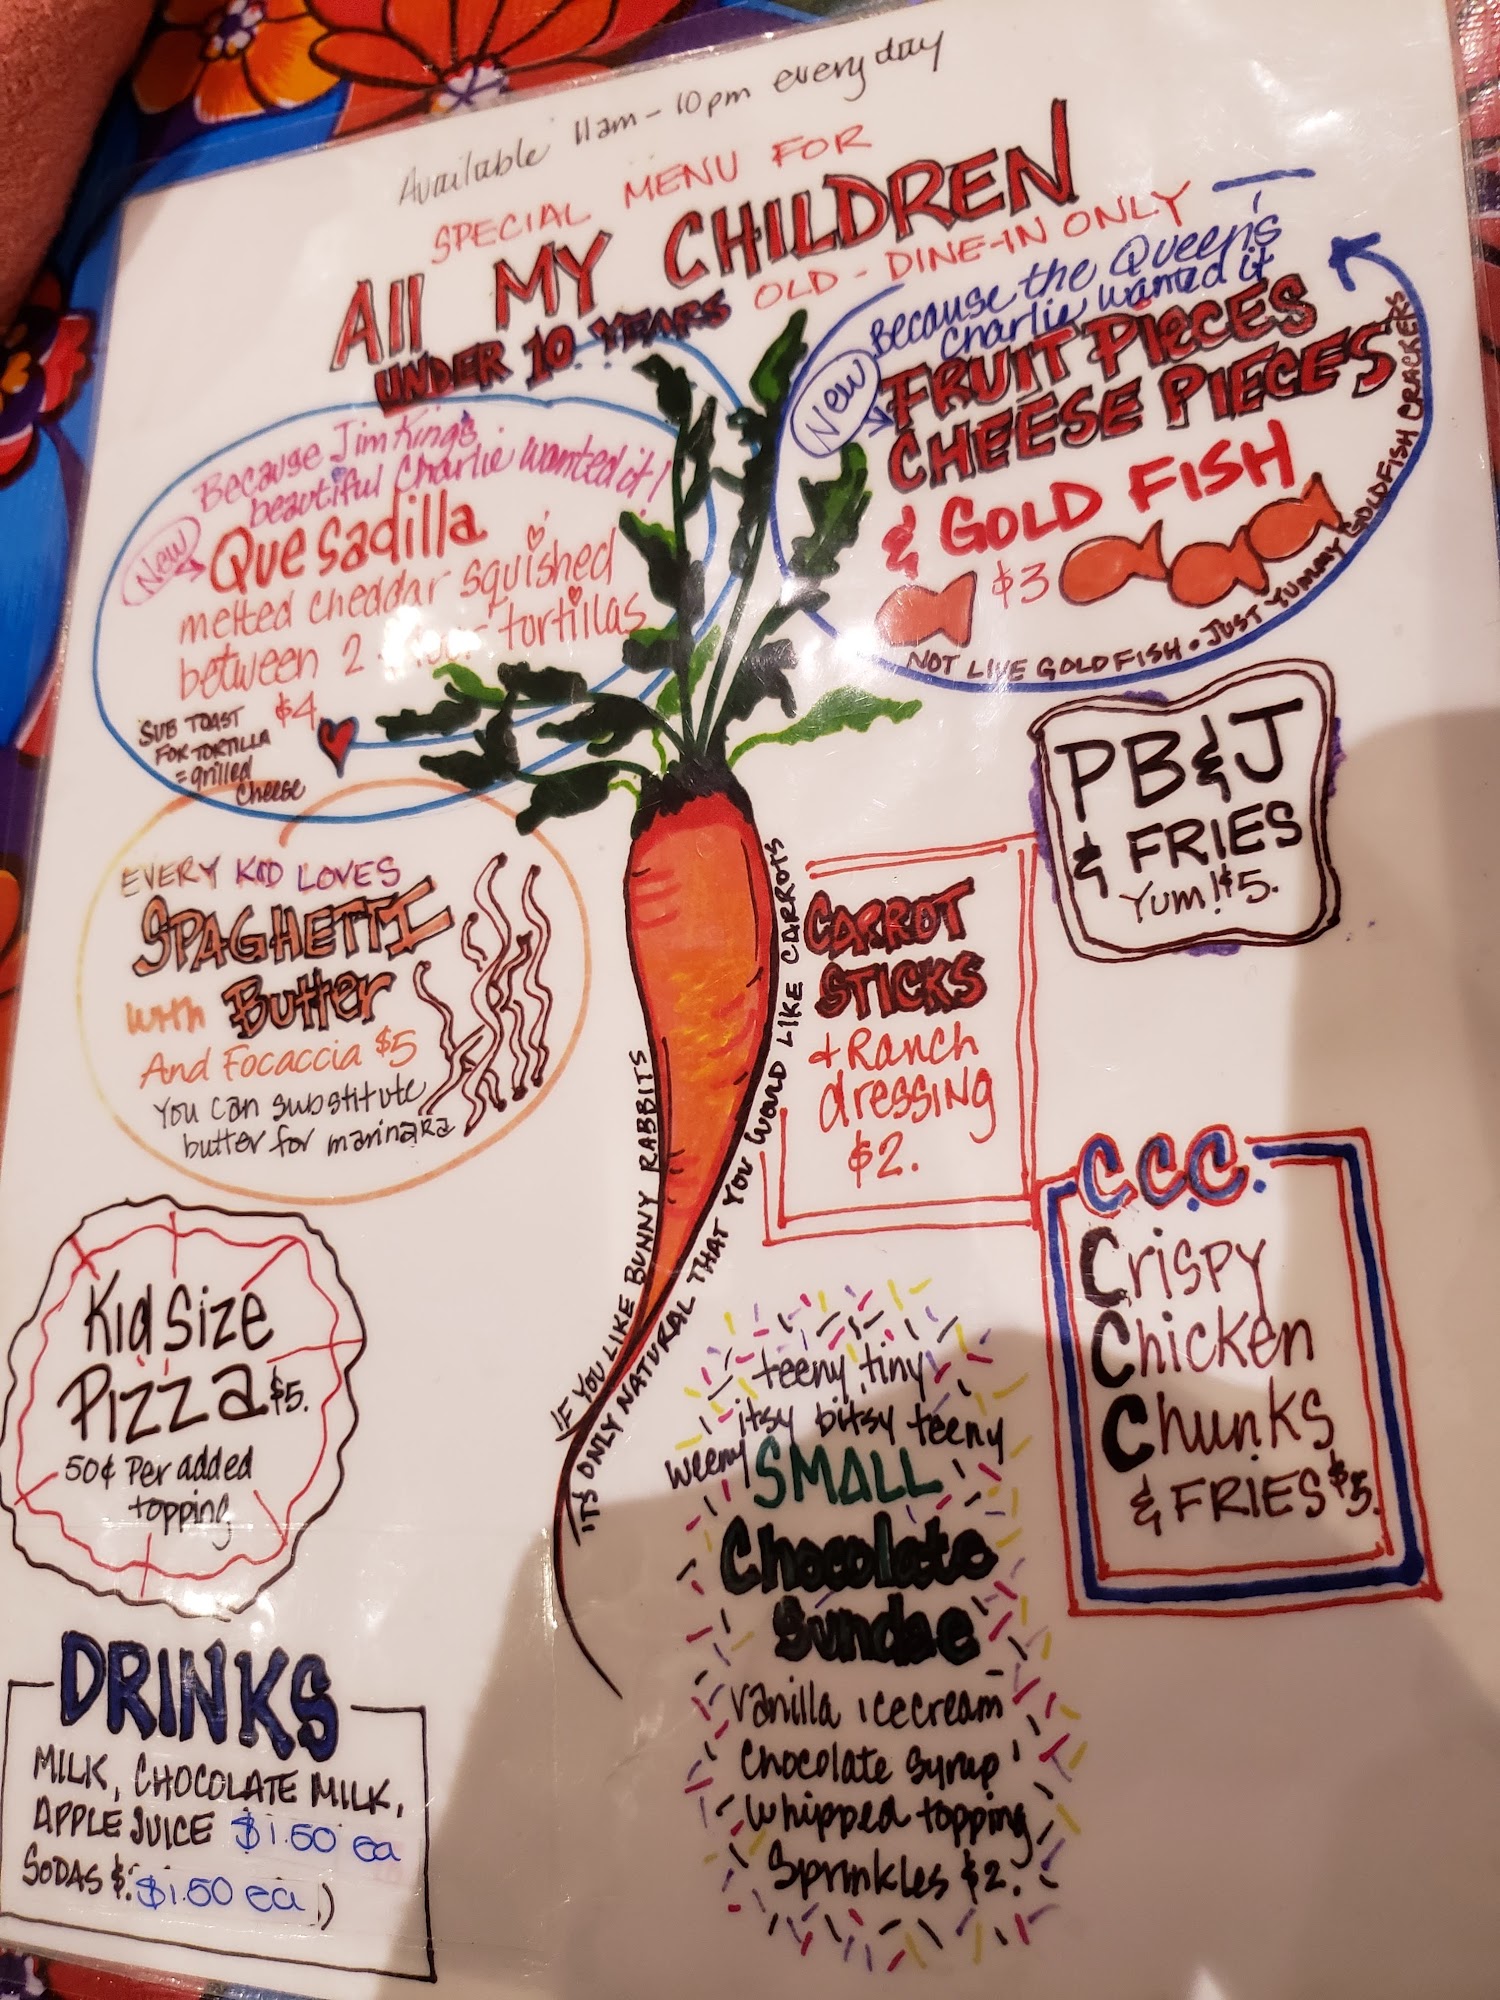 Available 11am - 10pm every day
SPECIAL MENU FOR
All MY CHILDREN
UNDER 10 YEARS OLD - DINE-IN ONLY
Because Jim King's
beautiful Charlie wanted it!
New
Quesadilla
melted cheddar squished
between 2 flour tortillas
$4
SUB TOAST
FOR TORTILLA
= grilled
cheese
Because the Queen's
Charlie wanted it
New
FRUIT PIECES
CHEESE PIECES
& GOLD FISH
$3
NOT LIVE GOLDFISH • JUST YUMMY GOLDFISH CRACKERS
PB&J
& FRIES
Yum! $5.
EVERY KID LOVES
SPAGHETTI
WITH Butter
And Focaccia $5
You can substitute
butter for marinara
IF YOU LIKE BUNNY RABBITS
IT'S ONLY NATURAL THAT YOU WOULD LIKE CARROTS
CARROT
STICKS
+ Ranch
dressing
$2.
C.C.C.
Crispy
Chicken
Chunks
& FRIES $5.
Kid Size
Pizza $5.
50¢ Per added
topping
teeny tiny
itsy bitsy teeny
weeny SMALL
Chocolate
Sundae
vanilla icecream
chocolate syrup
whipped topping
Sprinkles $2.
DRINKS
MILK, CHOCOLATE MILK,
APPLE JUICE $1.50 ea
SODAS $1.50 ea )